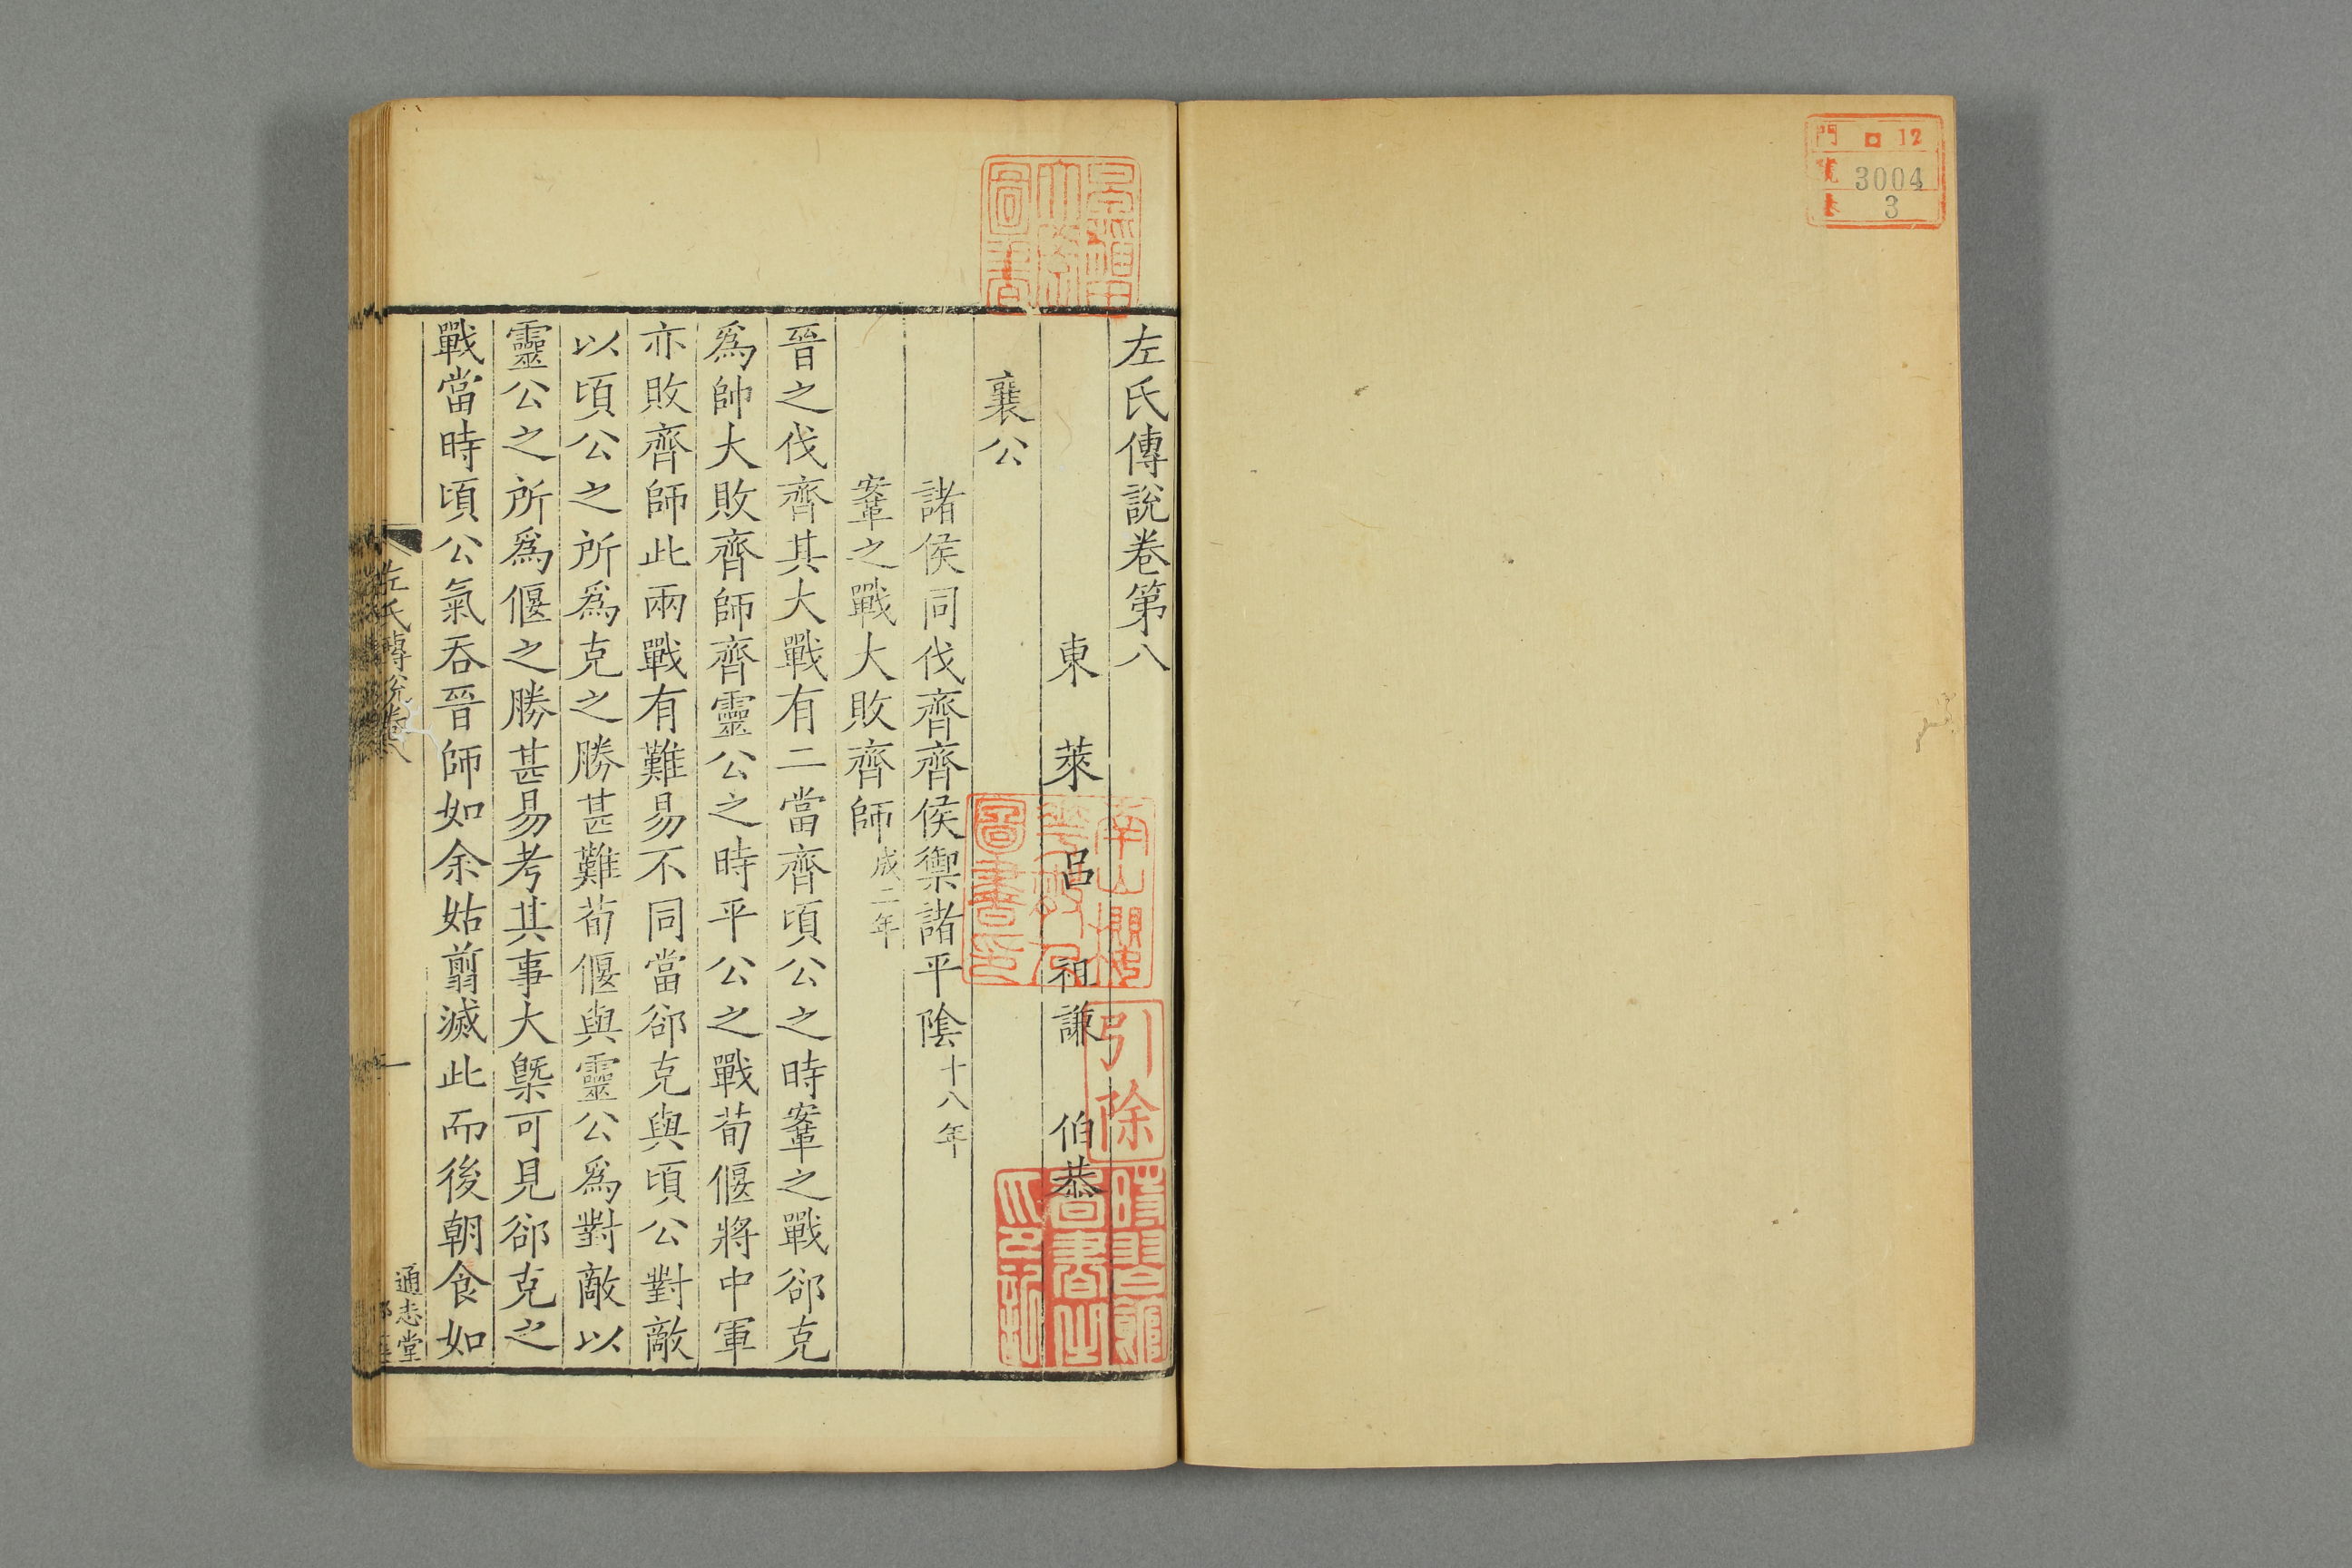 門 口 12
號 3004
卷 3
左氏傳說卷第八
東萊呂祖謙伯恭
襄公
諸侯同伐齊齊侯禦諸平陰十八年
鞌之戰大敗齊師成二年
晉之伐齊其大戰有二當齊頃公之時鞌之戰郤克
爲帥大敗齊師齊靈公之時平公之戰荀偃將中軍
亦敗齊師此兩戰有難易不同當郤克與頃公對敵
以頃公之所爲克之勝甚難荀偃與靈公爲對敵以
靈公之所爲偃之勝甚易考其事大槩可見郤克之
戰當時頃公氣吞晉師如余姑翦滅此而後朝食如
左氏傳說卷八
一
通志堂
圖書
引除
圖書印